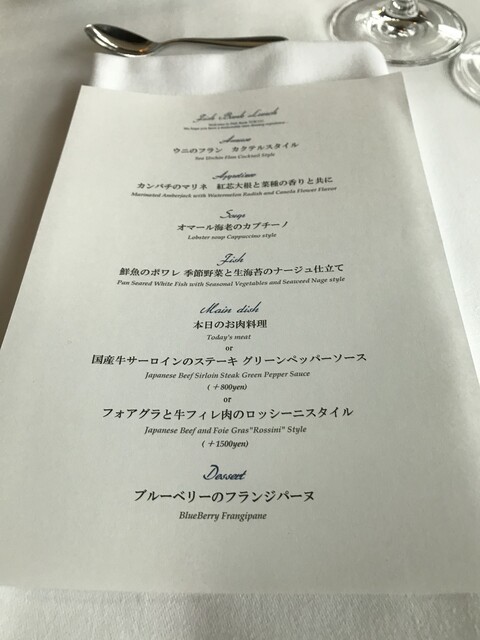 Fish Bank Lunch
Welcome to Fish Bank TOKYO
We hope you have a memorable time dining experience
Amuse
ウニのフラン カクテルスタイル
Sea Urchin Flan Cocktail Style
Appetizer
カンパチのマリネ 紅芯大根と菜種の香りと共に
Marinated Amberjack with Watermelon Radish and Canola Flower Flavor
Soup
オマール海老のカプチーノ
Lobster soup Cappuccino style
Fish
鮮魚のポワレ 季節野菜と生海苔のナージュ仕立て
Pan Seared White Fish with Seasonal Vegetables and Seaweed Nage style
Main dish
本日のお肉料理
Today's meat
or
国産牛サーロインのステーキ グリーンペッパーソース
Japanese Beef Sirloin Steak Green Pepper Sauce
(+800yen)
or
フォアグラと牛フィレ肉のロッシーニスタイル
Japanese Beef and Foie Gras"Rossini" Style
(+1500yen)
Dessert
ブルーベリーのフランジパーヌ
BlueBerry Frangipane